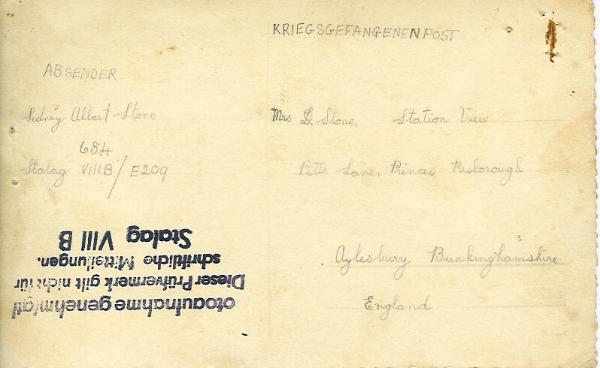 KRIEGSGEFANGENENPOST
ABSENDER
Sidney Albert Stone
684
Stalag VIIIB / E209
Mrs D. Stone, Station View
Potts Lane, Princes Risborough
Aylesbury Buckinghamshire
England
otoaufnahme genehmigt!
Dieser Prüfvermerk gilt nicht für
schriftliche Mitteilungen.
Stalag VIII B